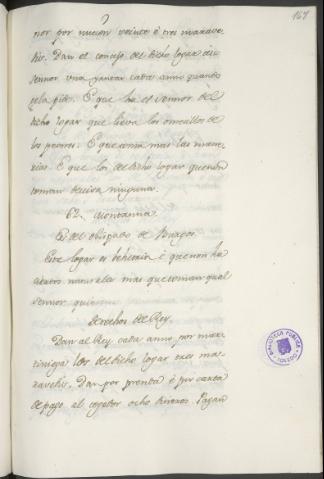 167
nor por nución veinte é tres marave-
dis. Dan el concejo del dicho logar al
Sennor una yantar cada anno quando
gela pide. É que ha el Sennor del
dicho logar que lieva los omecillos de
los peones. É que toma mas las mane-
rias. É que los del dicho logar que non
toman devisa ninguna.
62. Montanna
Es del obispado de Burgos.
Este logar es behetria é que non ha
naturales mas que toman qual
Sennor quieren
Derechos del Rey.
Dan al Rey cada anno por mar-
tiniega los del dicho logar tres ma-
ravedis. Dan por prenda é por carta
de pago al cogedor ocho dineros. Pagan
BIBLIOTECA PUBLICA
TOLEDO